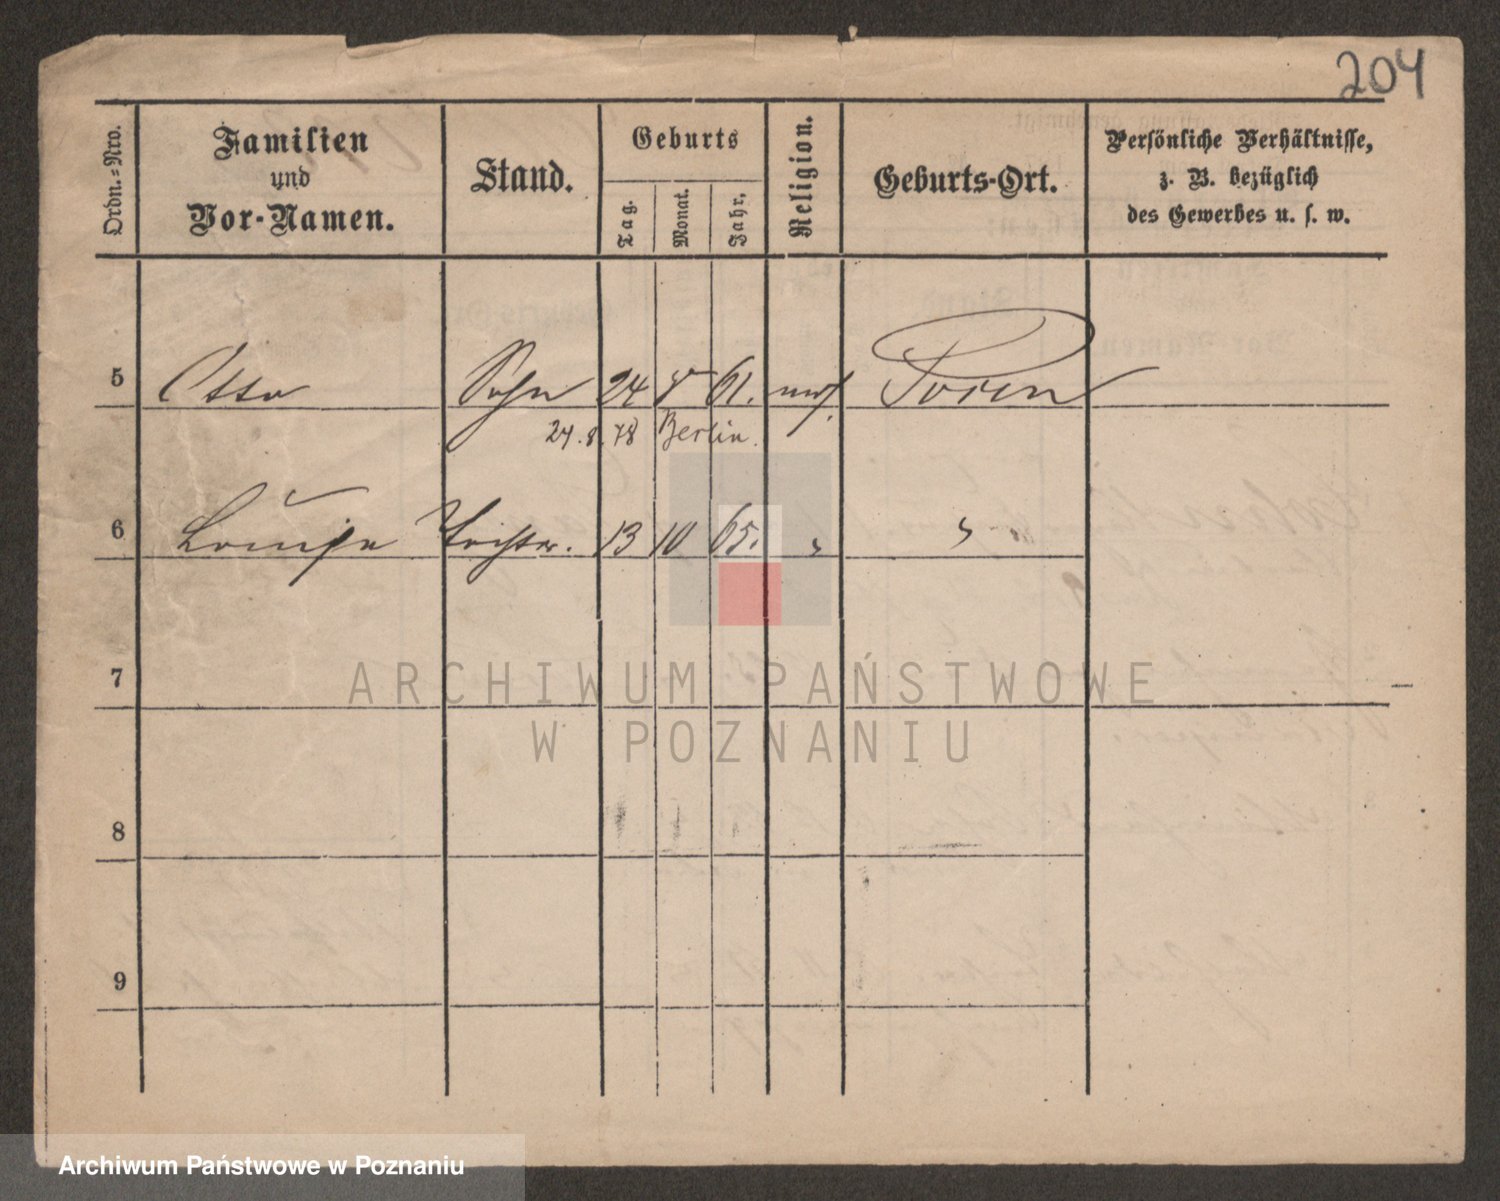 204
Ordn.=Nro.
Familien
und
Vor-Namen.
Stand.
Geburts
Tag.
Monat.
Jahr,
Religion.
Geburts-Ort.
Persönliche Verhältnisse,
z. B. bezüglich
des Gewerbes u. s. w.
5 Otto Sohn 24 61. Posen
24.8.78 Berlin.
6 Louise Tochter. 13 10 65. " "
7
8
9
ARCHIWUM PAŃSTWOWE
W POZNANIU
Archiwum Państwowe w Poznaniu